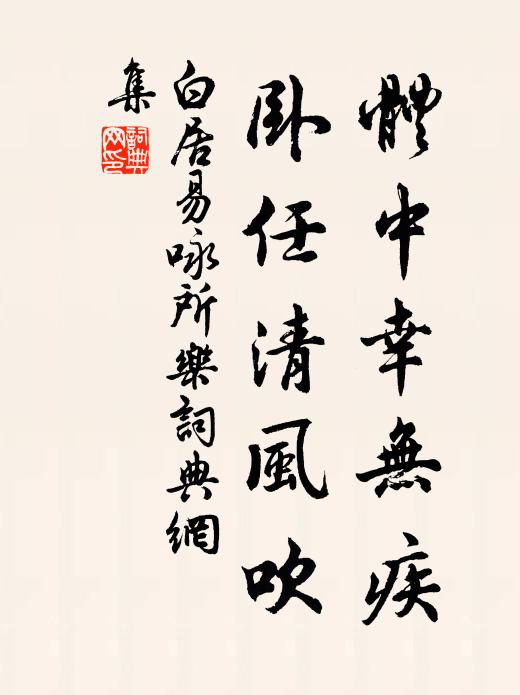 體中幸無疾
卧任清風吹
白居易咏所樂詞典網
集
詞典
网印